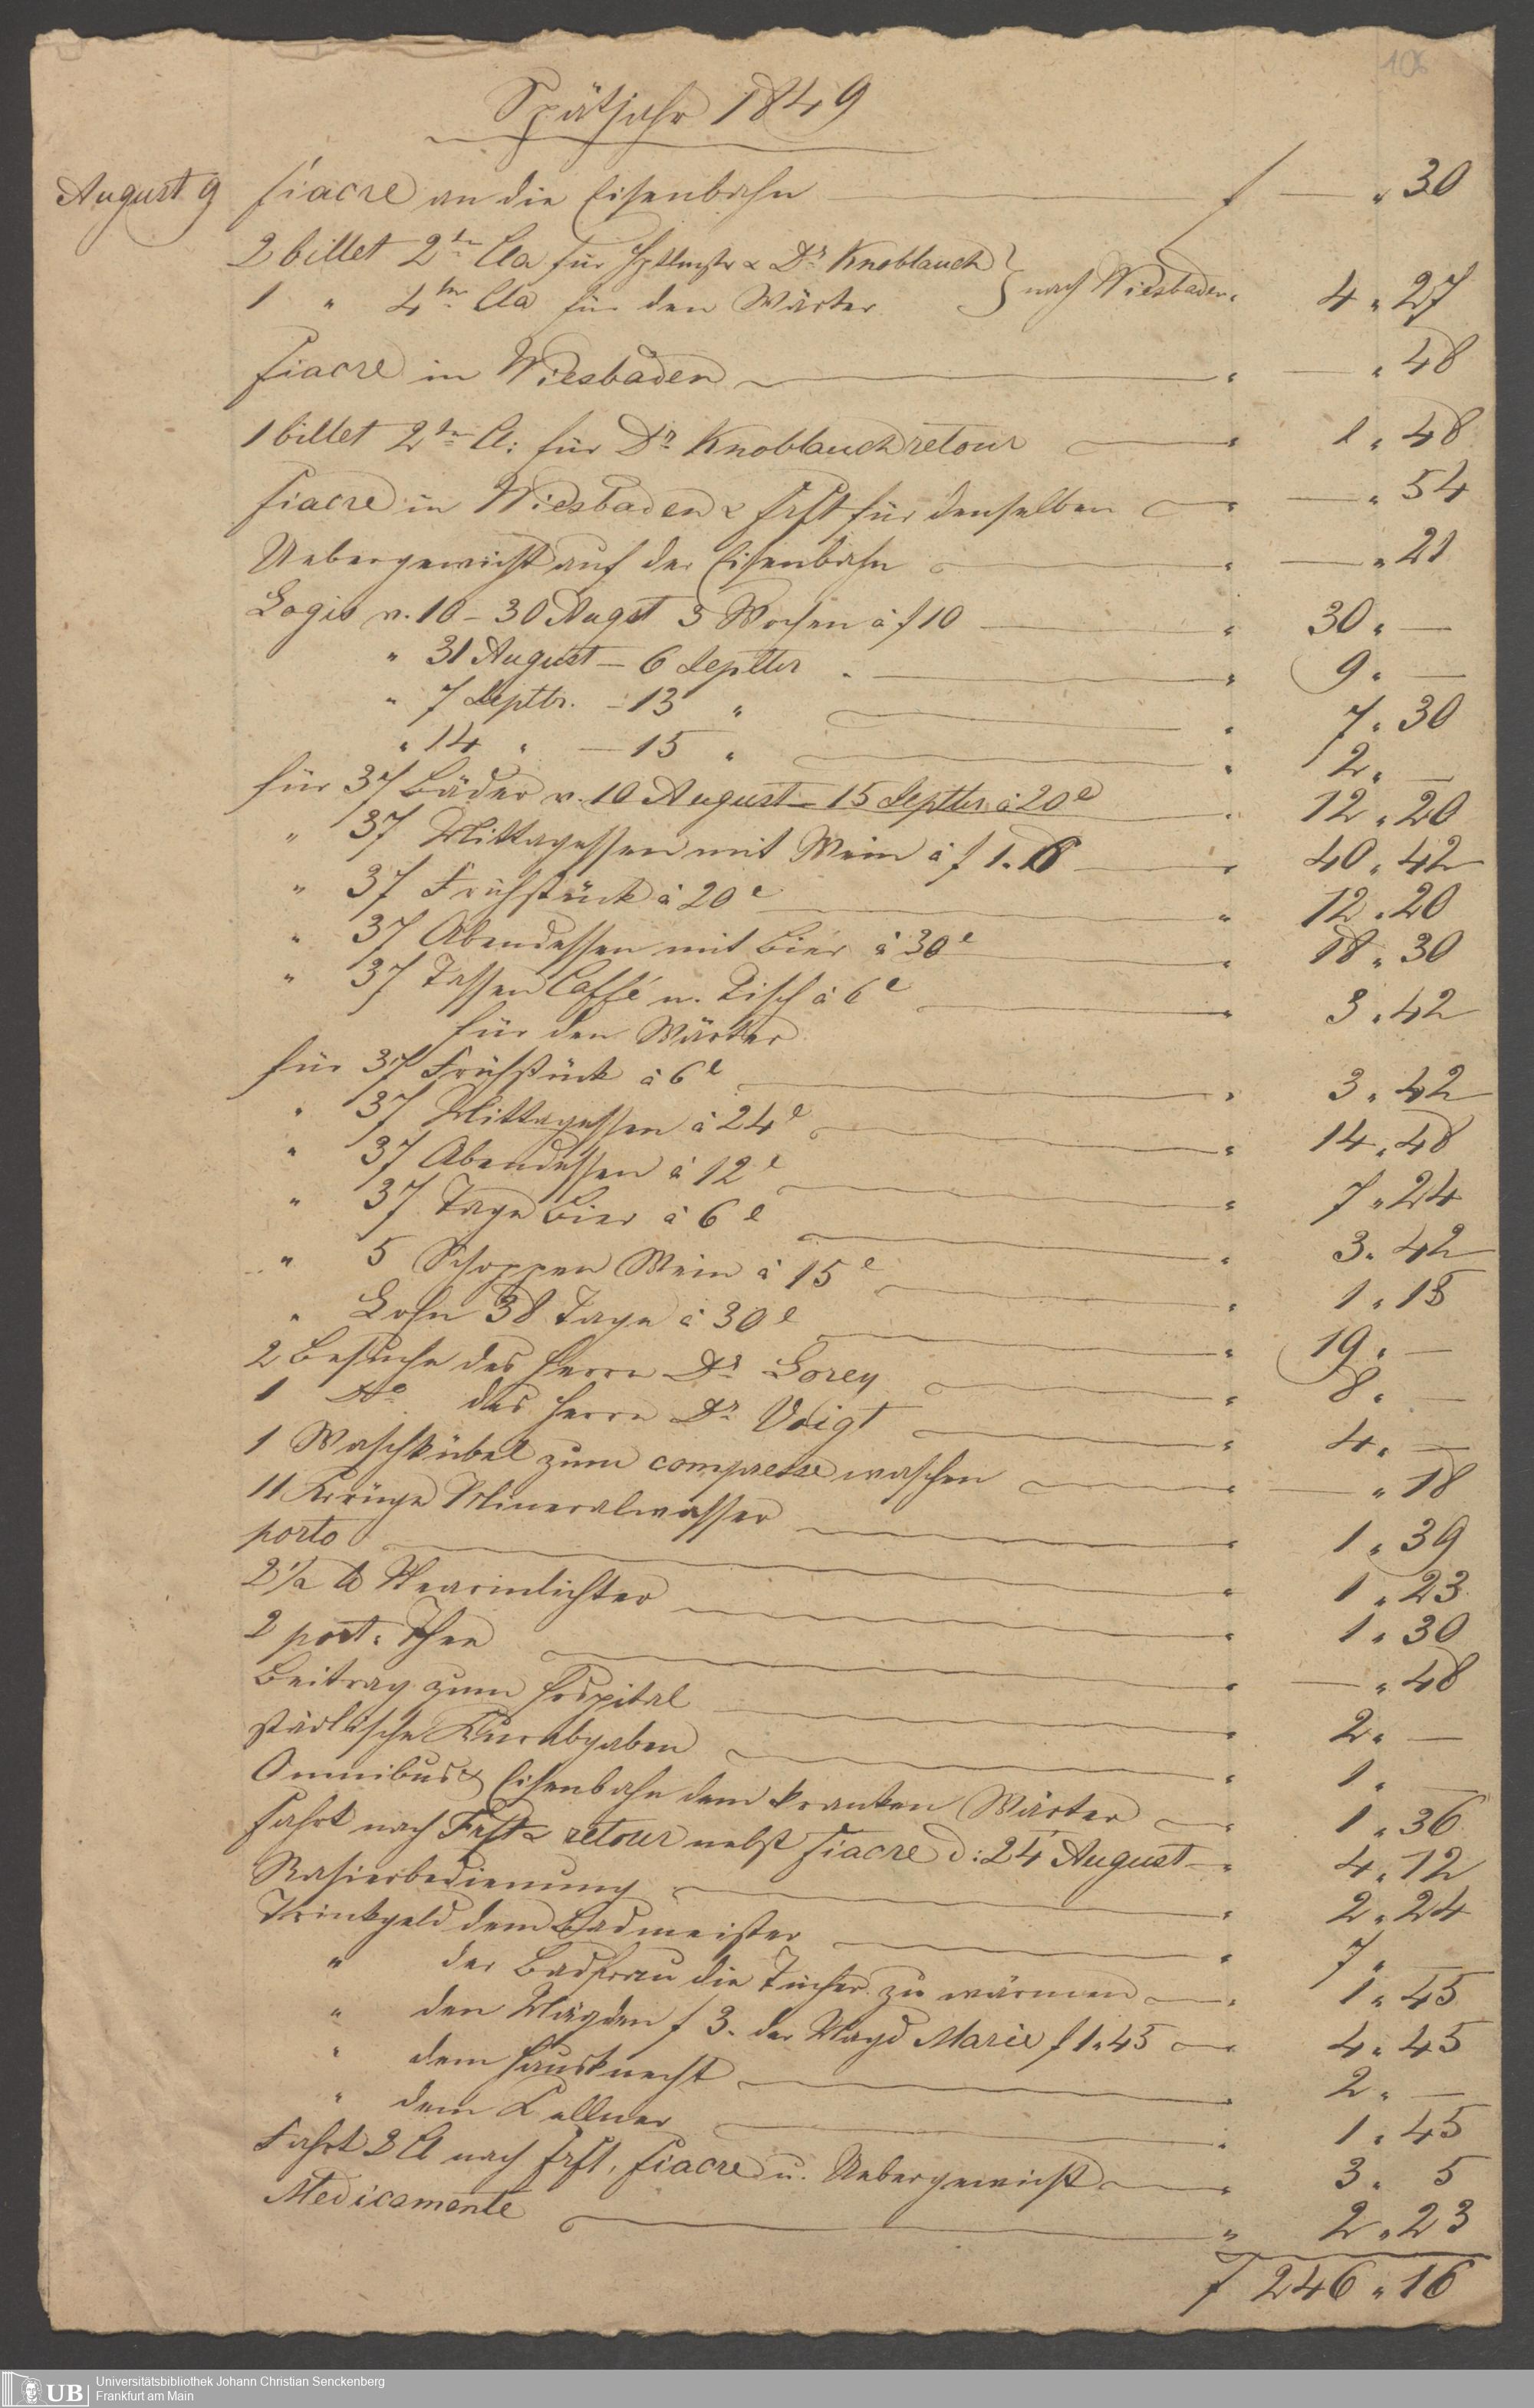 106
Spätjahr 1849
August 9 fiacre an die Eisenbahn f — „ 30
2 billet 2ter Cla für Hptlmstr & Dr Knoblauch
1 „ 4ter Cla für den Wärter } nach Wiesbaden „ 4 „ 27
fiacre in Wiesbaden „ — „ 48
1 billet 2ter Cl: für Dr Knoblauch retour „ 1 „ 48
fiacre in Wiesbaden & Frft für denselben „ — „ 54
Uebergewicht auf der Eisenbahn „ — „ 21
Logis v. 10 – 30 Augst 3 Wochen à f 10 „ 30 „ —
„ 31 August – 6 Septbr „ 9 „ —
„ 7 Septbr. – 13 „ „ 7 „ 30
„ 14 „ – 15 „ „ 2 „ —
für 37 Bäder v. 10 August – 15 Septbr à 20 x „ 12 „ 20
„ 37 Mittagessen mit Wein à f 1. 6 „ 40 „ 42
„ 37 Frühstück à 20 x „ 12 „ 20
„ 37 Abendessen mit Bier à 30 x „ 18 „ 30
„ 37 Tassen Caffé n. Tisch à 6 x „ 3 „ 42
für den Wärter
für 37 Frühstück à 6 x „ 3 „ 42
„ 37 Mittagessen à 24 x „ 14 „ 48
„ 37 Abendessen à 12 x „ 7 „ 24
„ 37 Tage Bier à 6 x „ 3 „ 42
„ 5 Schoppen Wein à 15 x „ 1 „ 15
„ Lohn 38 Tage à 30 x „ 19 „ —
2 Besuche des Herrn Dr Lorey „ 8 „ —
1 do des Herrn Dr Voigt „ 4 „ —
1 Waschkübel zum compresse waschen „ — „ 18
11 Krüge Mineralwasser „ 1 „ 39
porto „ 1 „ 23
2 1/2 ℔ Stearinlichter „ 1 „ 30
2 port. Thee „ — „ 48
Beitrag zum Hospital „ 2 „ —
städtische Kurabgaben „ 1 „ —
Omnibus & Eisenbahn dem kranken Wärter „ 1 „ 36
Fahrt nach Frft & retour nebst fiacre d: 24 August „ 4 „ 12
Rasierbedienung „ 2 „ 24
Trinkgeld dem Badmeister „ 7 „ —
„ der Badfrau die Tücher zu wärmen „ 1 „ 45
„ den Mägden f 3. der Magd Marie f 1 „ 45 „ 4 „ 45
„ dem Hausknecht „ 2 „ —
„ dem Kellner „ 1 „ 45
Fahrt 2 Cl nach Frft, fiacre u. Uebergewicht „ 3 „ 5
Medicamente „ 2 „ 23
f 246 „ 16
UB Universitätsbibliothek Johann Christian Senckenberg
Frankfurt am Main